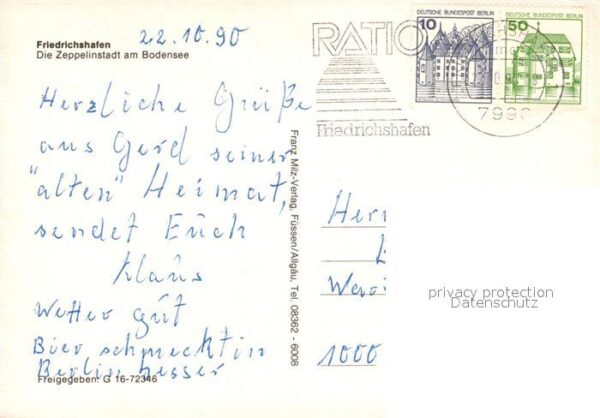 22.10.90
Friedrichshafen
Die Zeppelinstadt am Bodensee
Herzliche Grüße
aus Gerd seiner
"alten" Heimat,
sendet Euch
Klaus
Wetter gut
Bier schmeckt in
Berlin besser
Freigegeben: G 16-72346
Franz Milz-Verlag, Füssen/Allgäu, Tel. 08362 - 6008
RATIO
Friedrichshafen
10
DEUTSCHE BUNDESPOST BERLIN
50
DEUTSCHE BUNDESPOST BERLIN
Herr
1000
privacy protection
Datenschutz